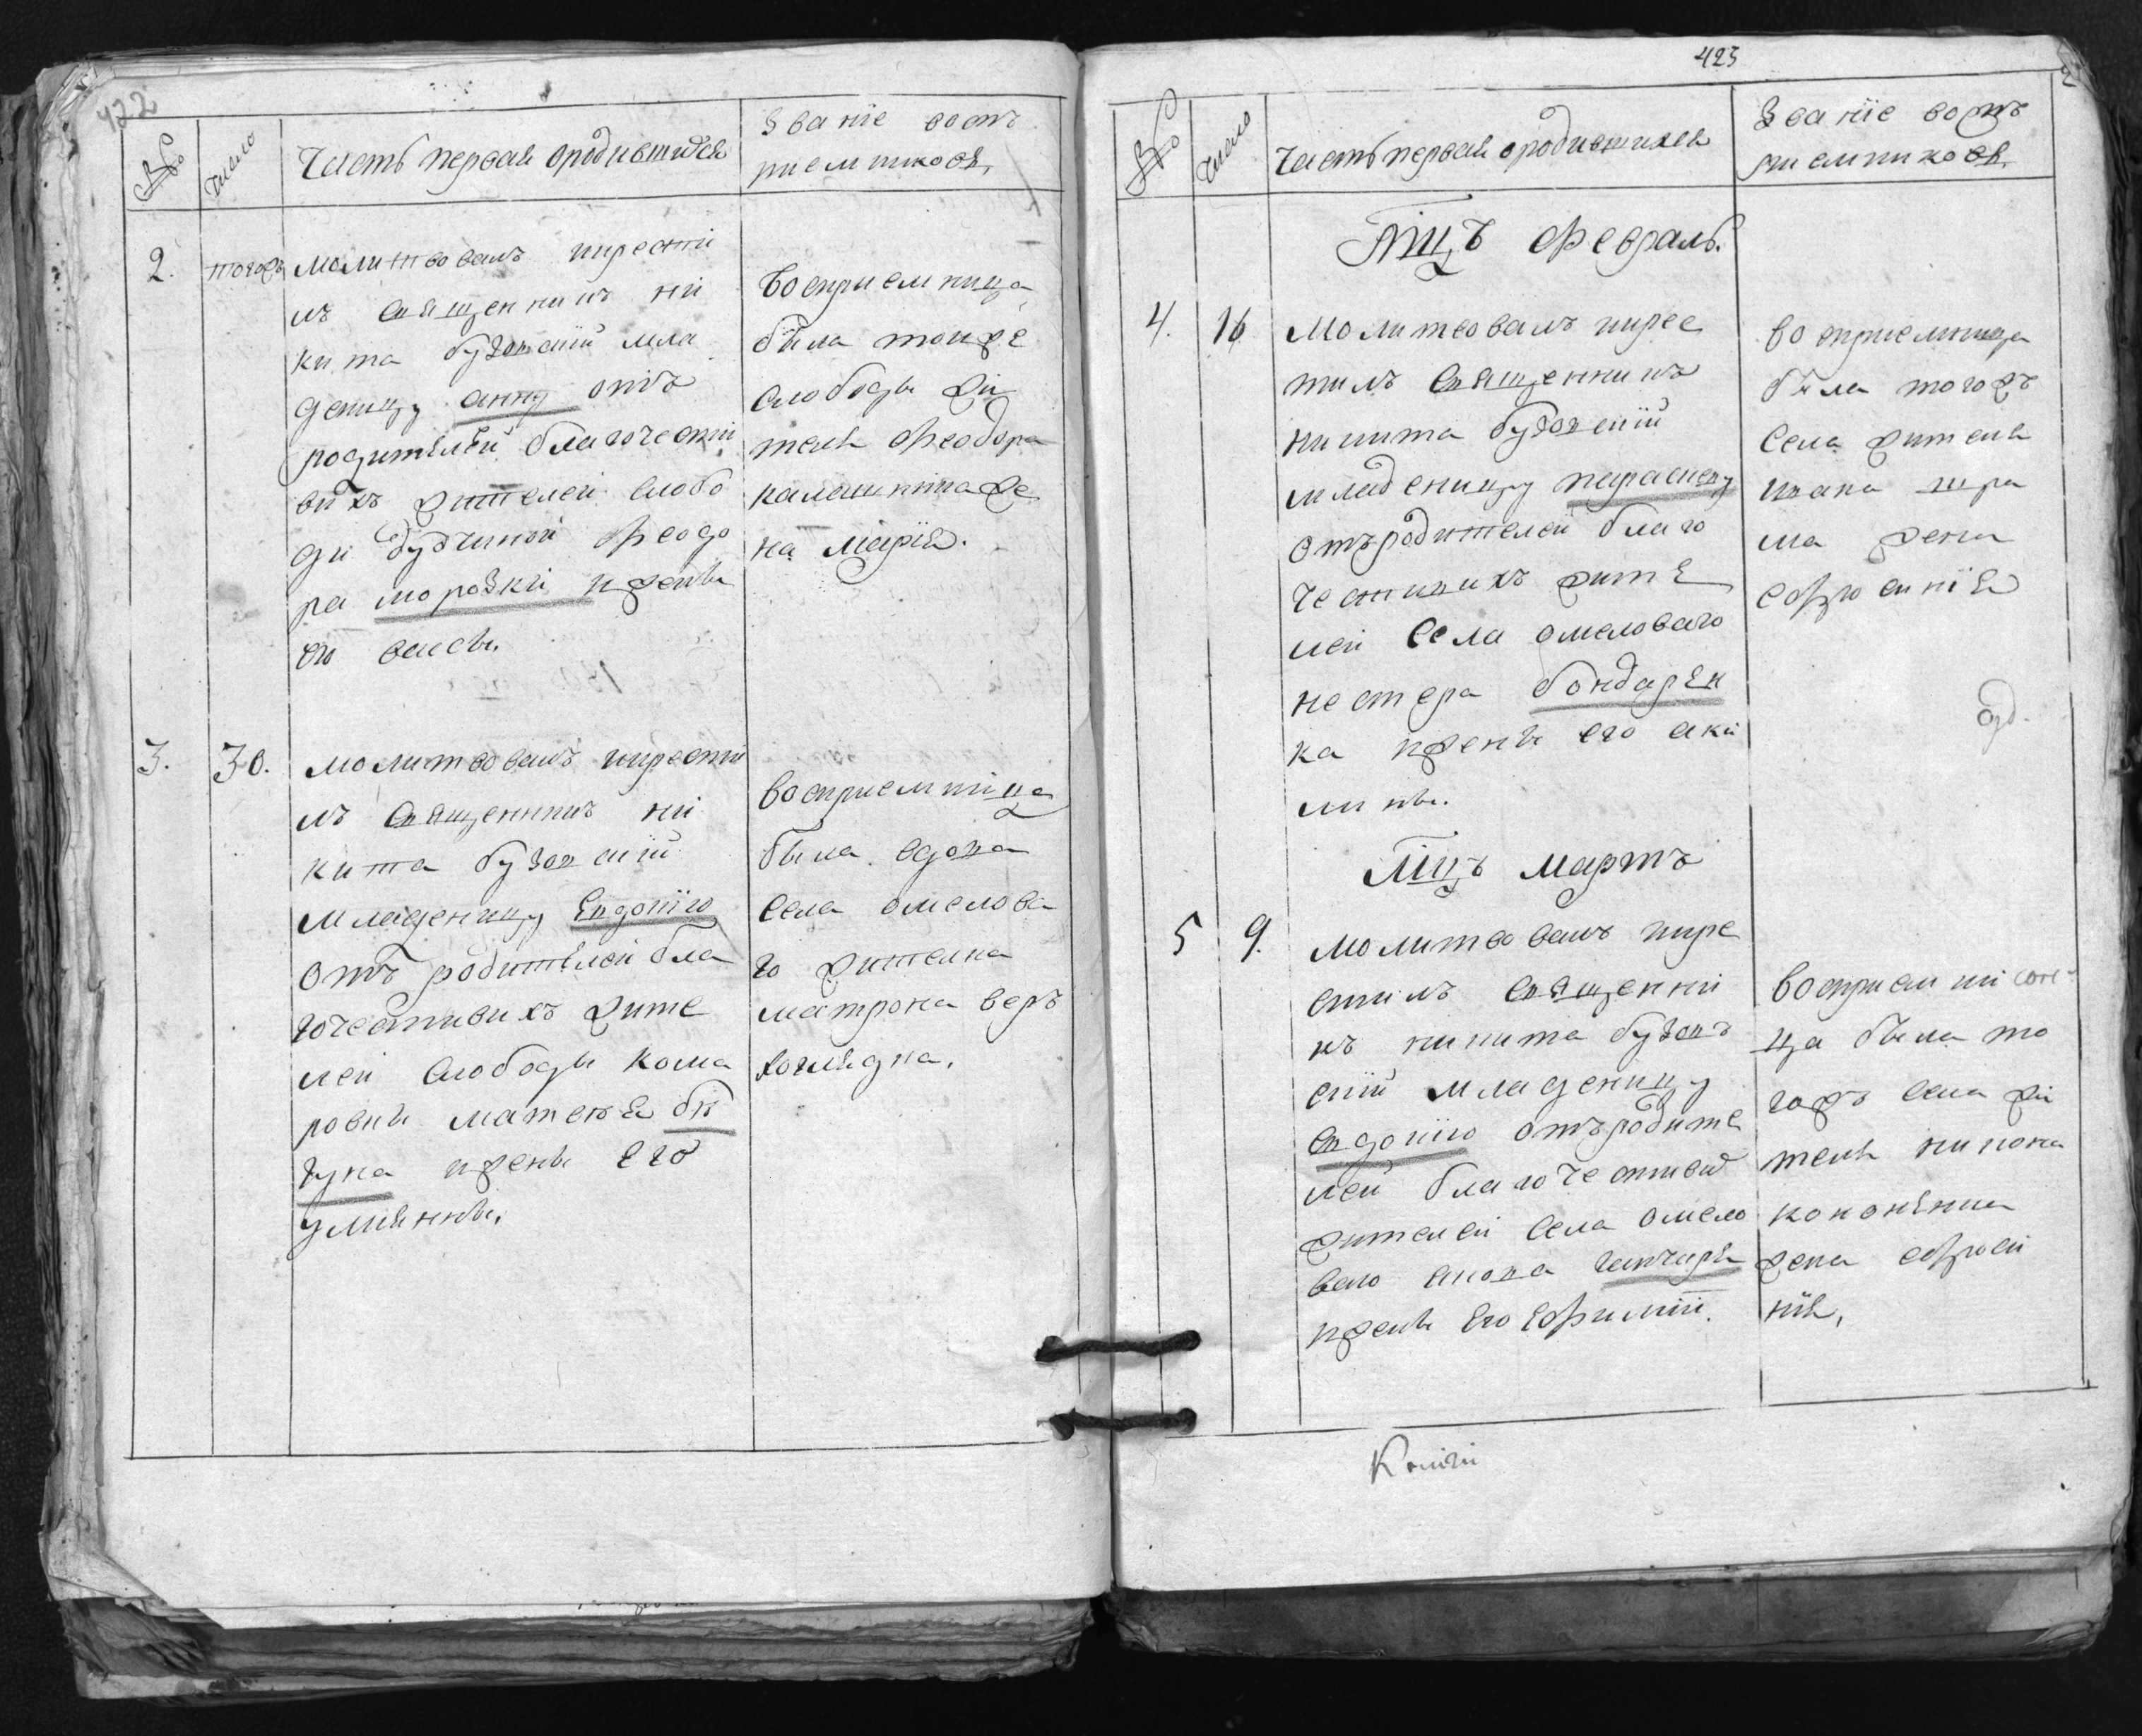 422
№
число
Часть первая ородившихся
Званїе восъ
приемниковъ,
2.
тогожъ
Молитвовалъ икрести
лъ священникъ ни
кита бузовскїй мла
деницу анну отъ
родителей благочести
выхъ жителей слобо
ди будчиной феодо
ра морозки ижены
его васси.
Восприемница
била тоиже
слободы жи
теля феодора
калашника же
на марїя.
3.
30.
молитвовалъ икрести
лъ священникъ ни
кита бузовскїй
младеницу Евдокїю
отъ родителей бла
гочестивихъ жите
лей слободы кома
ровки матвѣя
чука ижены его
улияны.
восприемница
была вдова
села омелова
го жителка
матрона веръ
423
№
число
Часть первая ородившихся
Званїе восъ
приемниковъ
Мцъ февраль.
4.
16
Молитвовалъ икрес
тилъ священникъ
никита бузовскїй
младеницу параскеву
отъродителей благо
честивихъ жите
лей села омеловаго
нестера бондарен
ка ижены его аки
лины.
восприемница
была тогожъ
села жителя
ивана
ма жена
евфросинїя
Мцъ мартъ
5
9.
молитвовалъ икре
стилъ священни
къ никита бузовъ
скїй младеницу
евдокїю отъродите
лей благочестивих
жителей села омело
ваго
ижены его ефимїи.
восприемни
ца была то
гожъ села жи
теля никона
кононенка
жена евфроси
нїя,